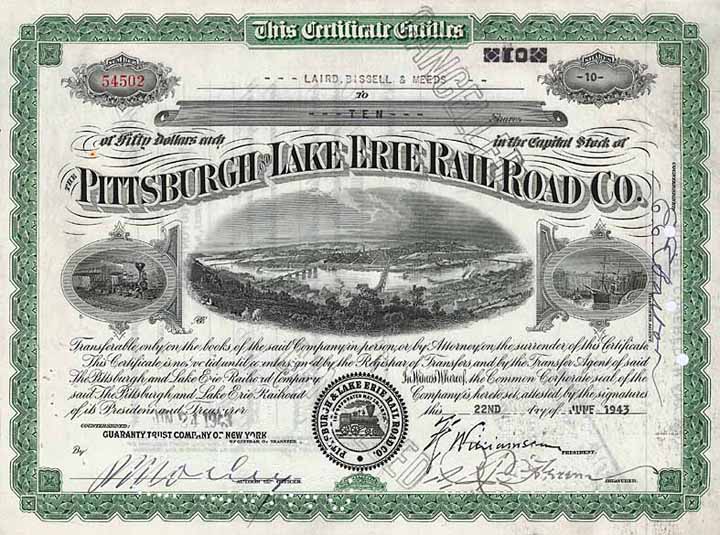 This Certificate Entitles
NUMBER
54502
10
- 10 -
- - - LAIRD, BISSELL & MEEDS - - -
TO
- - - TEN - - -
Shares
of Fifty Dollars each in the Capital Stock of
THE PITTSBURGH AND LAKE ERIE RAIL ROAD CO.
Transferable only on the books of the said Company in person, or by Attorney on the surrender of this Certificate
This Certificate is not valid until countersigned by the Registrar of Transfers, and by the Transfer Agent of said
The Pittsburgh and Lake Erie Railroad Company. In Witness Whereof, the Common Corporate seal of
said The Pittsburgh and Lake Erie Railroad Company is hereto set, attested by the signatures
of its President and Treasurer this 22ND day of JUNE, 1943
COUNTERSIGNED:
GUARANTY TRUST COMPANY OF NEW YORK
REGISTRAR OF TRANSFER,
By
PITTSBURGH & LAKE ERIE RAIL ROAD CO.
PRESIDENT.
TREASURER.
CANCELLED